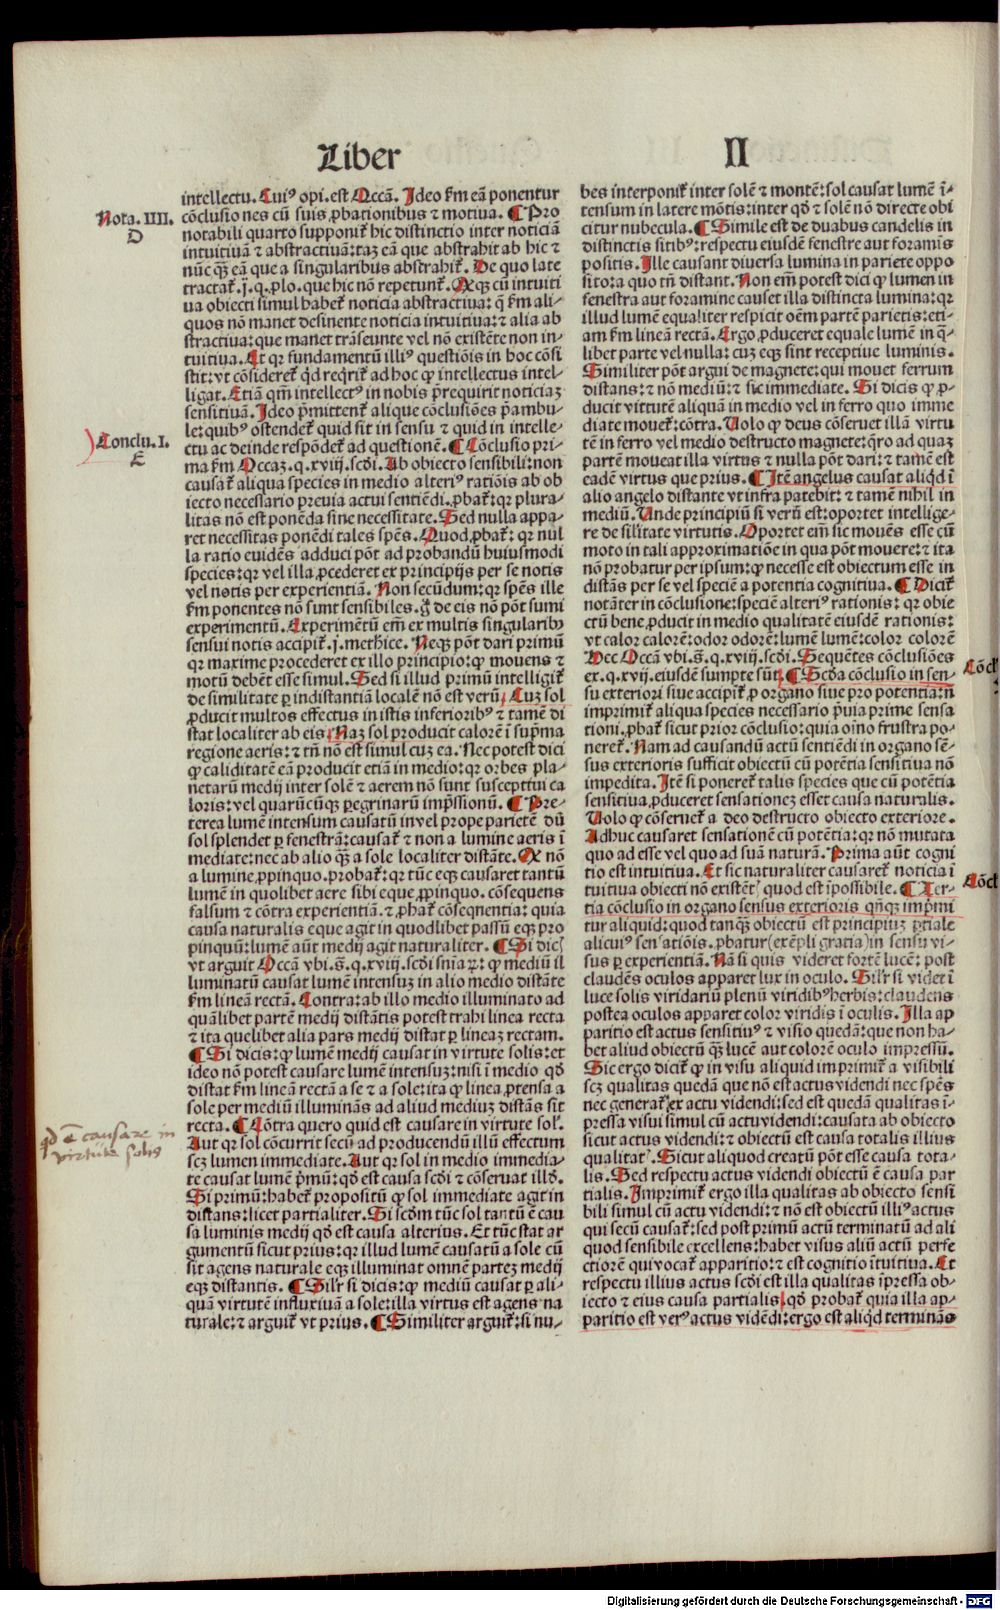 Liber II
Nota. IIII.
D
intellectu. Cuiꝰ opi. est Occā. Ideo ẜm eā ponentur
cōclusiones cū suis ꝓbationibus ⁊ motiua. ¶ Pro
notabili quarto supponiť hic distinctio inter noticiā
intuitiuā ⁊ abstractiuā: taꝫ eā que abstrahit ab hic ⁊
nūc qꝫ̄ eā que a singularibus abstrahiť. De quo late
tractať. j. q. plo. que hic nō repetunť. Exqꝫ cū intuiti
ua obiecti simul habeť noticia abstractiua: q̄ ẜm ali-
quos nō manet desinente noticia intuitiua: ⁊ alia ab
stractiua: que manet trāseunte vel nō existēte non in-
tuitiua. Et qr fundamentū illiꝰ questiōis in hoc cōsi
stit: vt cōsidereť qd reqriť ad hoc ꝙ intellectus intel-
ligat. Etiā qm̄ intellectꝰ in nobis p̄requirit noticiaꝫ
sensitiuā. Ideo p̄mittenť alique cōclusiōes p̄ambu-
le: quibꝰ ostendeť quid sit in sensu ⁊ quid in intelle-
ctu ac deinde respōdeť ad questionē. ¶ Cōclusio pri-
Conclu. I.
E
ma ẜm Occaꝫ. q. xviij. scdi. Ab obiecto sensibili: non
causať aliqua species in medio alteriꝰ ratiōis ab ob
iecto necessario preuia actui sentiēdi. ꝓbať: qr plura-
litas nō est ponēda sine necessitate. Sed nulla appa-
ret necessitas ponēdi tales spēs. Quod, ꝓbať: qr nul
la ratio euidēs adduci pōt ad probandū huiusmodi
species: qr vel illa ꝓcederet ex principijs per se notis
vel notis per experientiā. Non secūdum: qr spēs ille
ẜm ponentes nō sunt sensibiles. g̊ de eis nō pōt sumi
experimentū. Experimētū em̄ ex multis singularibꝰ
sensui notis accipiť. j. methice. Neqꝫ pōt dari primū
qr maxime procederet ex illo principio: ꝙ mouens ⁊
motū debēt esse simul. Sed si illud primū intelligiť
de similitate ꝑ indistantiā localē nō est verū. Cuꝫ sol
ꝓducit multos effectus in istis inferioribꝰ ⁊ tamē di
stat localiter ab eis. Naꝫ sol producit calorē ī sup̄ma
regione aeris: ⁊ tn̄ nō est simul cuꝫ ea. Nec potest dici
ꝙ caliditatē eā producit etiā in medio: qr orbes pla-
netarū medij inter solē ⁊ aerem nō sunt susceptiui ca
loris: vel quarūcūqꝫ ꝑegrinarū imp̄ssionū. ¶ Pre-
terea lumē intensum causatū in vel prope parietē dū
sol splendet ꝑ fenestrā: causať ⁊ non a lumine aeris ī
mediate: nec ab alio qꝫ̄ a sole localiter distāte. Q nō
a lumine, ꝓpinquo. probať: qr tūc eqꝫ causaret tantū
lumē in quolibet aere sibi eque ꝓpinquo. cōsequens
falsum ⁊ cōtra experientiā. ⁊ ꝓbať cōsequentia: quia
causa naturalis eque agit in quodlibet passū eqꝫ pro
pinquū: lumē aūt medij agit naturaliter. ¶ Si dicis
vt arguit Occā vbi. s̄. q. xviij. scdi sniaꝝ: ꝙ mediū il
luminatū causat lumē intensuꝫ in alio medio distāte
ẜm lineā rectā. Contra: ab illo medio illuminato ad
quālibet partē medij distātis potest trahi linea recta
⁊ ita quelibet alia pars medij distat ꝑ lineaꝫ rectam.
¶ Si dicis: ꝙ lumē medij causat in virtute solis: et
ideo nō potest causare lumē intensuꝫ: nisi ī medio qd̄
distat ẜm lineā rectā a se ⁊ a sole: ita ꝙ linea ꝓtensa a
sole per mediū illuminās ad aliud mediuꝫ distās sit
recta. ¶ Cōtra quero quid est causare in virtute solꝭ.
qd ē causare in
virtute solis
Aut qr sol cōcurrit secū ad producendū illū effectum
scꝫ lumen immediate. Aut qr sol in medio immedia-
te causat lumē p̄mū: qd̄ est causa scdi ⁊ cōseruat illd̄.
Si primū: habeť propositū ꝙ sol immediate agit in
distans: licet partialiter. Si scdm tūc sol tantū ē cau
sa luminis medij qd̄ est causa alterius. Et tūc stat ar
gumentū sicut prius: qr illud lumē causatū a sole cū
sit agens naturale eqꝫ illuminat omnē parteꝫ medij
eqꝫ distantis. ¶ Silr̄ si dicis: ꝙ mediū causat ꝑ ali-
quā virtutē influxiuā a sole: illa virtus est agens na
turale: ⁊ arguiť vt prius. ¶ Similiter arguiť: si nu-
bes interponiť inter solē ⁊ montē: sol causat lumē ī-
tensum in latere mōtis: inter qd̄ ⁊ solē nō directe obi
citur nubecula. ¶ Simile est de duabus candelis in
distinctis sitibꝰ: respectu eiusdē fenestre aut foraminis
positis. Ille causant diuersa lumina in pariete oppo
sito: a quo tn̄ distant. Non em̄ potest dici ꝙ lumen in
fenestra aut foramine causet illa distincta lumina: qr
illud lumē equaliter respicit oēm partē parietis: eti-
am ẜm lineā rectā. Ergo ꝓduceret equale lumē in q̄-
libet parte vel nulla: cuꝫ eqꝫ sint receptiue luminis.
Similiter pōt argui de magnete: qui mouet ferrum
distans: ⁊ nō mediū: ⁊ sic immediate. Si dicis ꝙ ꝓ-
ducit virtutē aliquā in medio vel in ferro quo imme
diate moueť: cōtra. Uolo ꝙ deus cōseruet illā virtu
tē in ferro vel medio destructo magnete: qro ad quaꝫ
partē moueat illa virtus ⁊ nulla pōt dari: ⁊ tamē est
eadē virtus que prius. ¶ Itē angelus causat aliqd ī
alio angelo distante vt infra patebit: ⁊ tamē nihil in
mediū. Unde principiū si verū est: oportet intellige-
re de silitate virtutis. Oportet em̄ sic mouēs esse cū
moto in tali approximatiōe in qua pōt mouere: ⁊ ita
nō probatur per ipsum: ꝙ necesse est obiectum esse in
distās per se vel speciē a potentia cognitiua. ¶ Diciť
notāter in cōclusione: speciē alteriꝰ rationis: qr obie
ctū bene ꝓducit in medio qualitatē eiusdē rationis:
vt calor calorē: odor odorē: lumē lumē: color colorē
Hec Occā vbi. s̄. q. xviij. scdi. Sequētes cōclusiōes
ex. q. xvij. eiusdē sumpte sūt. ¶ Scda cōclusio in sen-
Cōcl
su exteriori siue accipiť ꝓ organo siue pro potentia: n̄
imprimiť aliqua species necessario p̄uia prime sensa
tioni. ꝓbať sicut prior cōclusio: quia oīno frustra po-
nereť. Nam ad causandū actū sentiēdi in organo sē-
sus exterioris sufficit obiectū cū potētia sensitiua nō
impedita. Itē si ponereť talis species que cū potētia
sensitiua ꝓduceret sensationeꝫ esset causa naturalis.
Uolo ꝙ cōserueť a deo destructo obiecto exteriore.
Adhuc causaret sensationē cū potētia: qr nō mutata
quo ad esse vel quo ad suā naturā. Prima aūt cogni
tio est intuitiua. Et sic naturaliter causareť noticia ī
tuitiua obiecti nō existētꝭ quod est īpossibile. ¶ Ter-
Cōcl
tia cōclusio in organo sensus exterioris qn̄qꝫ imp̄mi
tur aliquid: quod tanqꝫ̄ obiectū est principiuꝫ ꝑtiale
alicuiꝰ sensatiōis. ꝓbatur (exēpli gratia) in sensu vi-
sus ꝑ experientiā. Nā si quis videret fortē lucē: post
claudēs oculos apparet lux in oculo. Silr̄ si videt ī
luce solis viridariū plenū viridibꝰ herbis: claudens
postea oculos apparet color viridis ī oculis. Illa ap
paritio est actus sensitiuꝰ ⁊ visio quedā: que non ha-
bet aliud obiectū qꝫ̄ lucē aut colorē oculo impressū.
Sic ergo diciť ꝙ in visu aliquid imprimiť a visibili
scꝫ qualitas quedā que nō est actus videndi nec spēs
nec generať ex actu videndi: sed est quedā qualitas ī-
pressa visui simul cū actu videndi: causata ab obiecto
sicut actus videndi: ⁊ obiectū est causa totalis illius
qualitatꝭ. Sicut aliquod creatū pōt esse causa tota-
lis. Sed respectu actus videndi obiectū ē causa par
tialis. Imprimiť ergo illa qualitas ab obiecto sensi
bili simul cū actu videndi: ⁊ nō est obiectū illiꝰ actus
qui secū causať: sed post primū actū terminatū ad ali
quod sensibile excellens: habet visus aliū actū perfe
ctiorē quivocať apparitio: ⁊ est cognitio ītuitiua. Et
respectu illius actus scdi est illa qualitas īpressa ob-
iecto ⁊ eius causa partialis. qd̄ probať quia illa ap-
paritio est verꝰ actus vidēdi: ergo est aliqd terminās
Digitalisierung gefördert durch die Deutsche Forschungsgemeinschaft - DFG